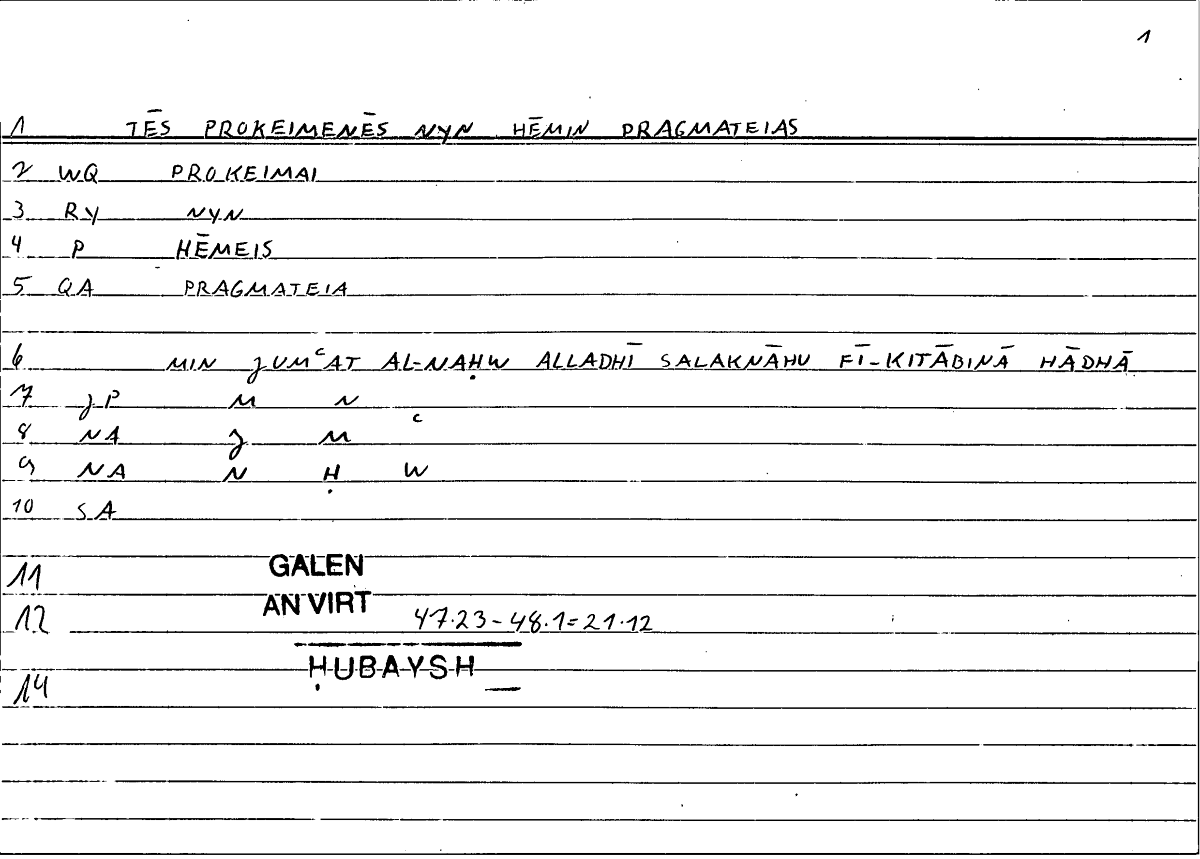 1
1 TĒS PROKEIMENĒS NYN HĒMIN PRAGMATEIAS
2 WQ PROKEIMAI
3 RY NYN
4 P HĒMEIS
5 QA PRAGMATEIA
6 MIN JUMʿAT AL-NAḤW ALLADHĪ SALAKNĀHU FĪ-KITĀBINĀ HĀDHĀ
7 JP M N
8 NA J M ʿ
9 NA N Ḥ W
10 SA
11 GALEN
12 AN VIRT 47.23-48.1=21.12
ḤUBAYSH
14